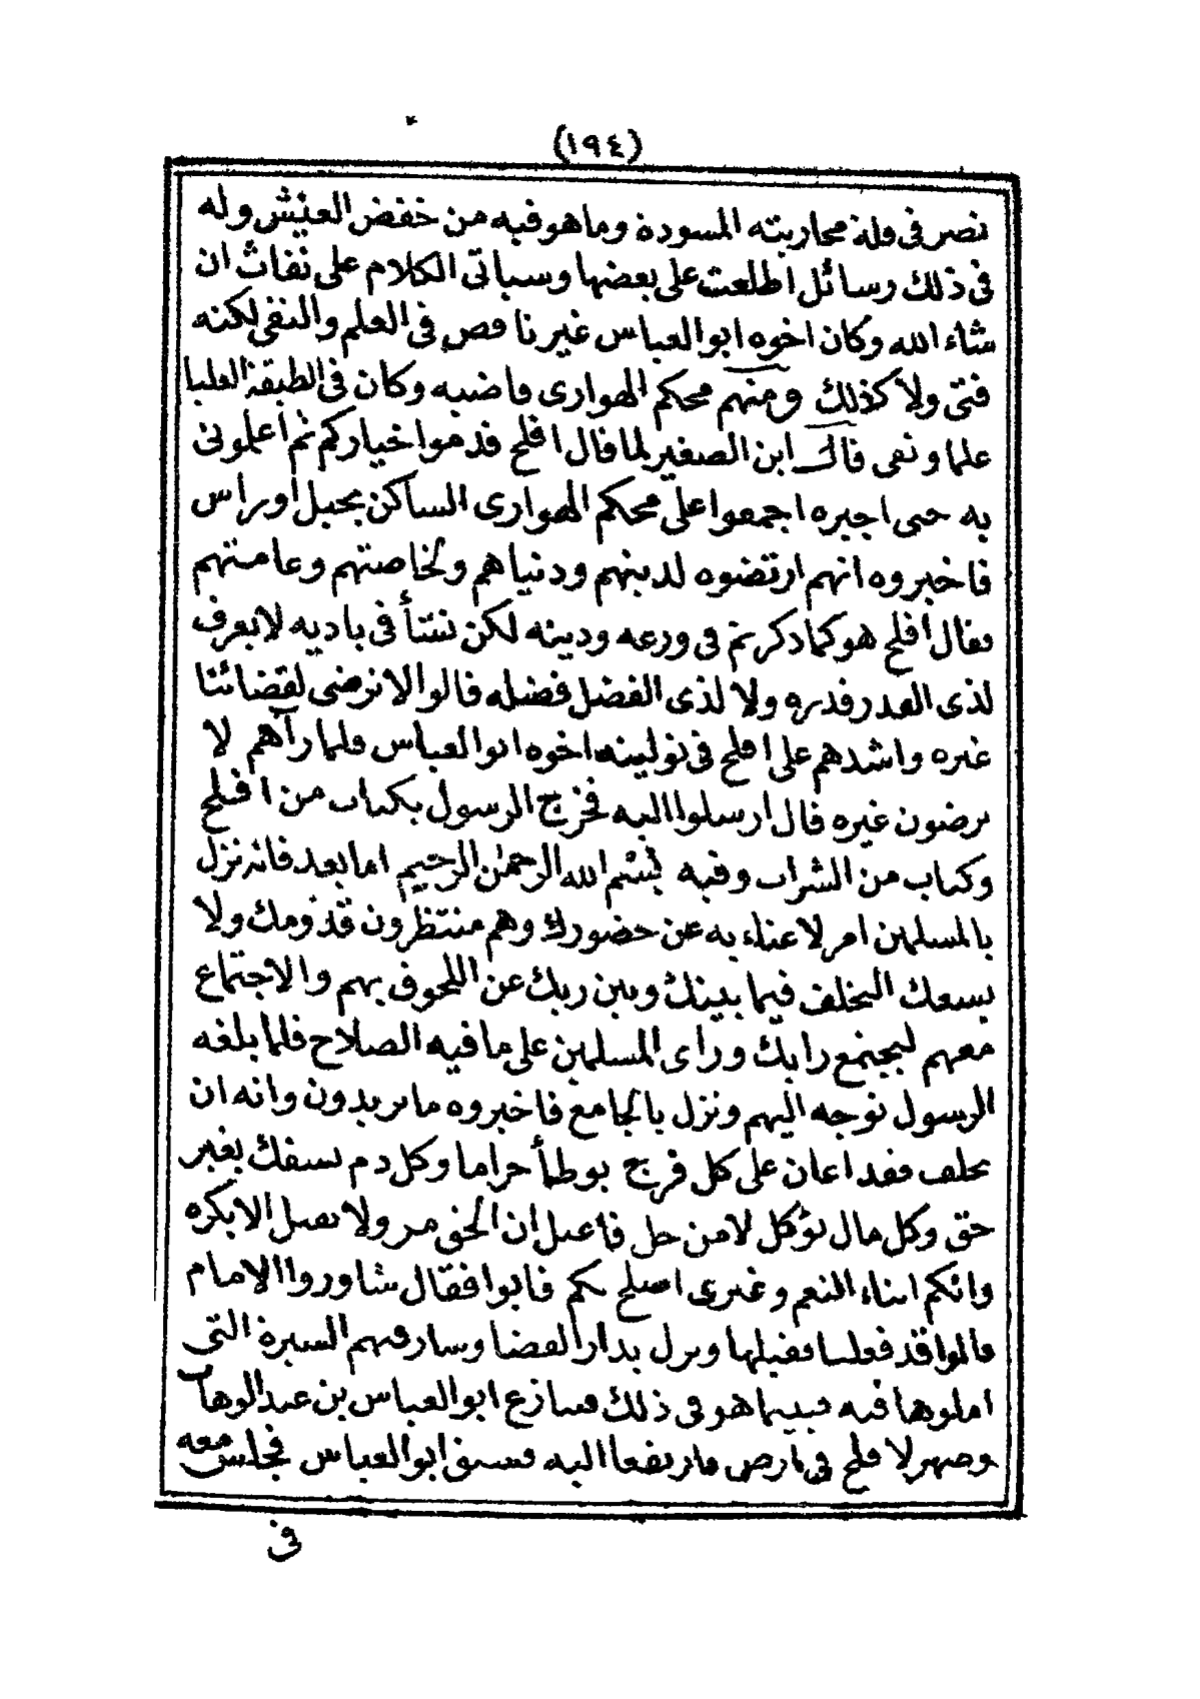 (١٩٤)
نصر فى قلة محاربته المسودة وما هو فيه من خفض العيش وله
فى ذلك رسائل اطلعت على بعضها وسياتى الكلام على نفاث ان
شاء الله وكان اخوه ابو العباس غير ناقص فى العلم والتقى لكنه
فتى ولا كذلك ومنهم محكم الهوارى قاضيه وكان فى الطبقة العليا
علما وتقى قال ابن الصغير لما قال افلح قدموا خياركم ثم أعلمونى
به حتى اجبره اجمعوا على محكم الهوارى الساكن بجبل اوراس
فاخبروه انهم ارتضوه لدينهم ودنياهم ولخاصتهم وعامتهم
فقال افلح هو كما ذكرتم فى ورعه ودينه لكن نشأ فى باديه لا يعرف
لذى القدر قدره ولا لذى الفضل فضله قالوا لا نرضى لقضائنا
غيره واشدهم على افلح فى توليته اخوه ابو العباس فلما رآهم لا
يرضون غيره قال ارسلوا اليه فخرج الرسول بكتاب من افلح
وكتاب من الشراب وفيه بسم الله الرحمن الرحيم اما بعد فانه نزل
بالمسلمين امر لا غناء به عن حضورك وهم منتظرون قدومك ولا
يسعك التخلف فيما بينك وبين ربك عن اللحوق بهم والاجتماع
معهم ليجتمع رايك وراى المسلمين على ما فيه الصلاح فلما بلغه
الرسول توجه اليهم ونزل بالجامع فاخبروه ما يريدون وانه ان
تخلف فقد اعان على كل فرج يوطأ حراما وكل دم يسفك بغير
حق وكل مال يؤكل لا من حل فاعل ان الحق مر ولا يقبل الا بكره
وانكم ابناء النعم وغيرى اصلح بكم فابوا فقال شاوروا الامام
قالوا قد فعلنا فقبلها ونزل بدار القضا وسار فيهم السيرة التى
املوها فيه فبينما هو فى ذلك تنازع ابو العباس بن عبد الوهاب
وصهر لافلح فى ارض فارتفعا اليه فسبق ابو العباس فجلس معه
فى